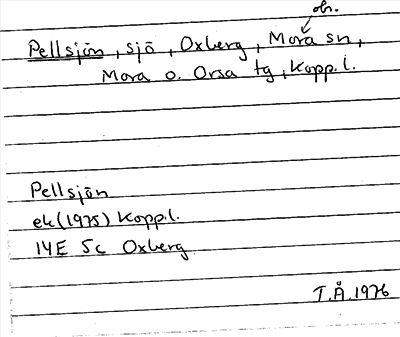 obr.
Pellsjön, sjö, Oxberg, Mora sn,
Mora o. Orsa tg, Kopp.l.
Pellsjön
ek(1975) Kopp.l.
14E 5c Oxberg
T.Å.1976